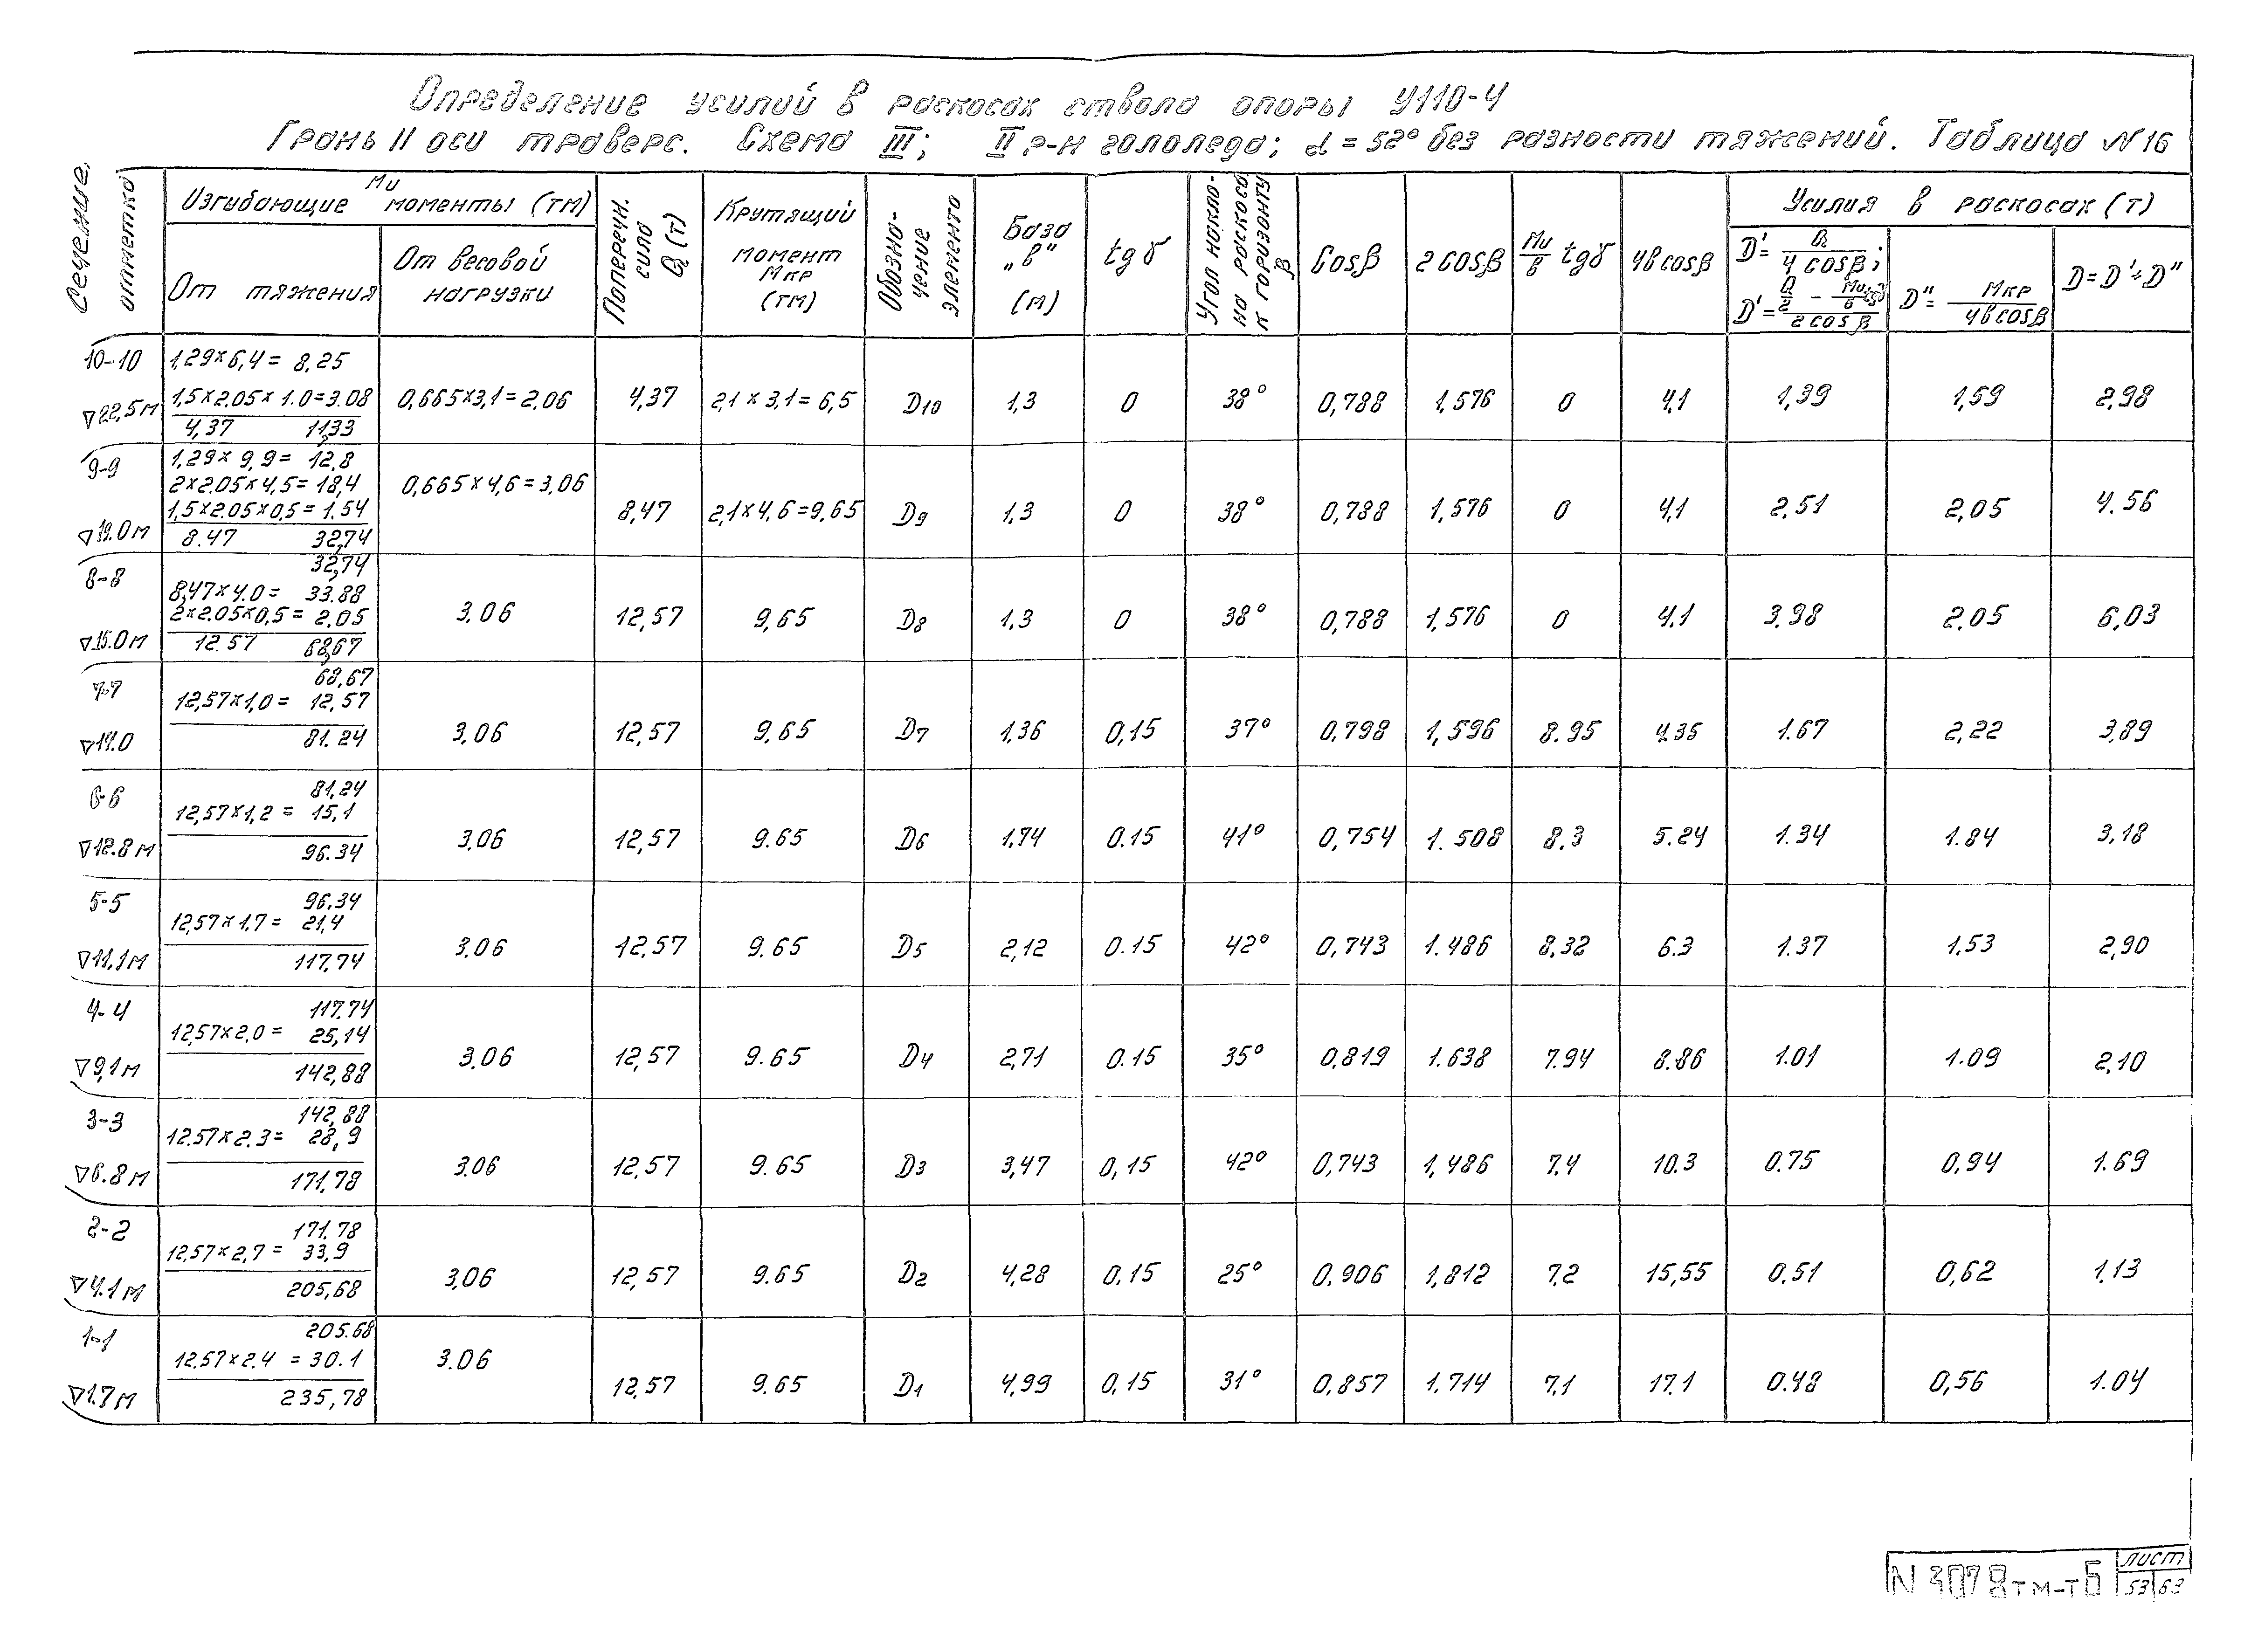 Определение усилий в раскосах ствола опоры У110-4
Грань II оси траверс. Схема III; II р-н гололеда; α = 52° без разности тяжений. Таблица №16
Сечение, отметка
Ми
Изгибающие моменты (тм)
От тяжения
От весовой нагрузки
Поперечн. сила Q (т)
Крутящий момент Мкр (тм)
Обозначение элемента
База „в" (м)
tgγ
Угол наклона раскоса к горизонту β
Cosβ
2 cosβ
Ми/в tgγ
4в cosβ
Усилия в раскосах (т)
D' = Q / 4 cosβ;
D' = (Q/2 - Ми/в tgγ) / 2 cosβ
D" = Мкр / 4в cosβ
D = D' + D"
10-10
▽22,5м
1,29×6,4 = 8,25
1,5×2.05×1.0=3.08
4,37 11,33
0,665×3,1=2,06
4,37
2,1 × 3,1 = 6,5
D10
1,3
0
38°
0,788
1,576
0
4,1
1,39
1,59
2,98
9-9
▽19.0м
1,29× 9,9 = 12,8
2×2.05×4,5= 18,4
1,5×2.05×0,5 = 1.54
8.47 32,74
0,665×4,6=3,06
8,47
2,1×4,6=9,65
D9
1,3
0
38°
0,788
1,576
0
4,1
2.51
2,05
4.56
8-8
▽15.0м
32,74
8,47×4.0= 33.88
2×2.05×0,5= 2,05
12.57 68,67
3.06
12,57
9,65
D8
1,3
0
38°
0,788
1,576
0
4.1
3.98
2.05
6,03
7-7
▽14.0
68,67
12,57×1,0= 12,57
81.24
3,06
12,57
9,65
D7
1,36
0,15
37°
0,798
1,596
8.95
4.35
1.67
2,22
3,89
6-6
▽12.8м
81,24
12,57×1,2 = 15,1
96.34
3.06
12,57
9.65
D6
1,74
0.15
41°
0,754
1.508
8.3
5.24
1.34
1.84
3,18
5-5
▽11,1м
96.34
12,57×1,7= 21,4
117,74
3.06
12,57
9.65
D5
2,12
0.15
42°
0,743
1.486
8,32
6.3
1.37
1,53
2,90
4-4
▽9,1м
117.74
12,57×2,0= 25,14
142,88
3.06
12,57
9.65
D4
2,71
0.15
35°
0,819
1.638
7.94
8.86
1.01
1.09
2,10
3-3
▽6.8м
142,88
12.57×2.3= 28,9
171,78
3.06
12,57
9.65
D3
3,47
0,15
42°
0,743
1,486
7,4
10.3
0.75
0,94
1.69
2-2
▽4.1м
171.78
12,57×2,7= 33,9
205,68
3,06
12,57
9.65
D2
4,28
0,15
25°
0,906
1,812
7,2
15,55
0,51
0,62
1.13
1-1
▽1.7м
205.68
12.57×2.4 = 30.1
235,78
3.06
12,57
9.65
D1
4,99
0,15
31°
0,857
1.714
7,1
17.1
0.48
0,56
1.04
N 3078тм-т5
лист
53 63